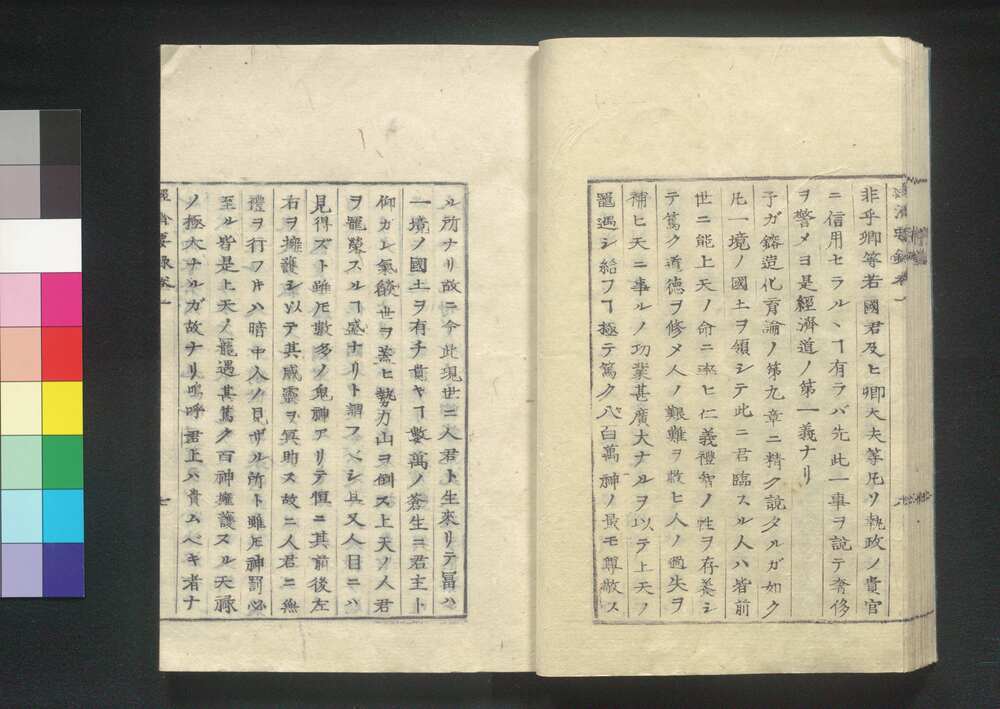 經濟要録卷一
非乎卿等若國君及ヒ卿大夫等凡ソ執政ノ貴官
ニ信用セラルヽヿ有ラバ先此一事ヲ說テ奢侈
ヲ警メヨ是經濟道ノ第一義ナリ
予ガ鎔造化育論ノ第九章ニ精ク說タルガ如ク
凡一境ノ國土ヲ領シテ此ニ君臨スル人ハ皆前
世ニ能上天ノ命ニ率ヒ仁義禮智ノ性ヲ存養シ
テ篤ク道德ヲ修メ人ノ艱難ヲ救ヒ人ノ過失ヲ
補ヒ天ニ事ルノ功業甚廣大ナルヲ以テ上天ノ
寵遇シ給フヿ極テ篤ク八百萬神ノ最モ尊敬ス
ル所ナリ故ニ今此現世ニ人君ト生來リテ冨ハ
一境ノ國土ヲ有チ貴キヿ數萬ノ蒼生ニ君主ト
仰ガレ氣燄世ヲ蓋ヒ勢力山ヲ倒ス上天ノ人君
ヲ寵榮スルヿ盛ナリト謂フベシ且又人目ニハ
見得ズト雖𪜈數多ノ鬼神アリテ恒ニ其前後左
右ヲ擁護シ以テ其威靈ヲ冥助ス故ニ人君ニ無
禮ヲ行フ𪜈ハ暗中人ノ見ザル所ト雖𪜈神罰必
至ル皆是上天ノ寵遇甚篤ク百神擁護スル天祿
ノ極大ナルガ故ナリ嗚呼君上ハ貴ムベキ者ナ
經濟要録卷一
七